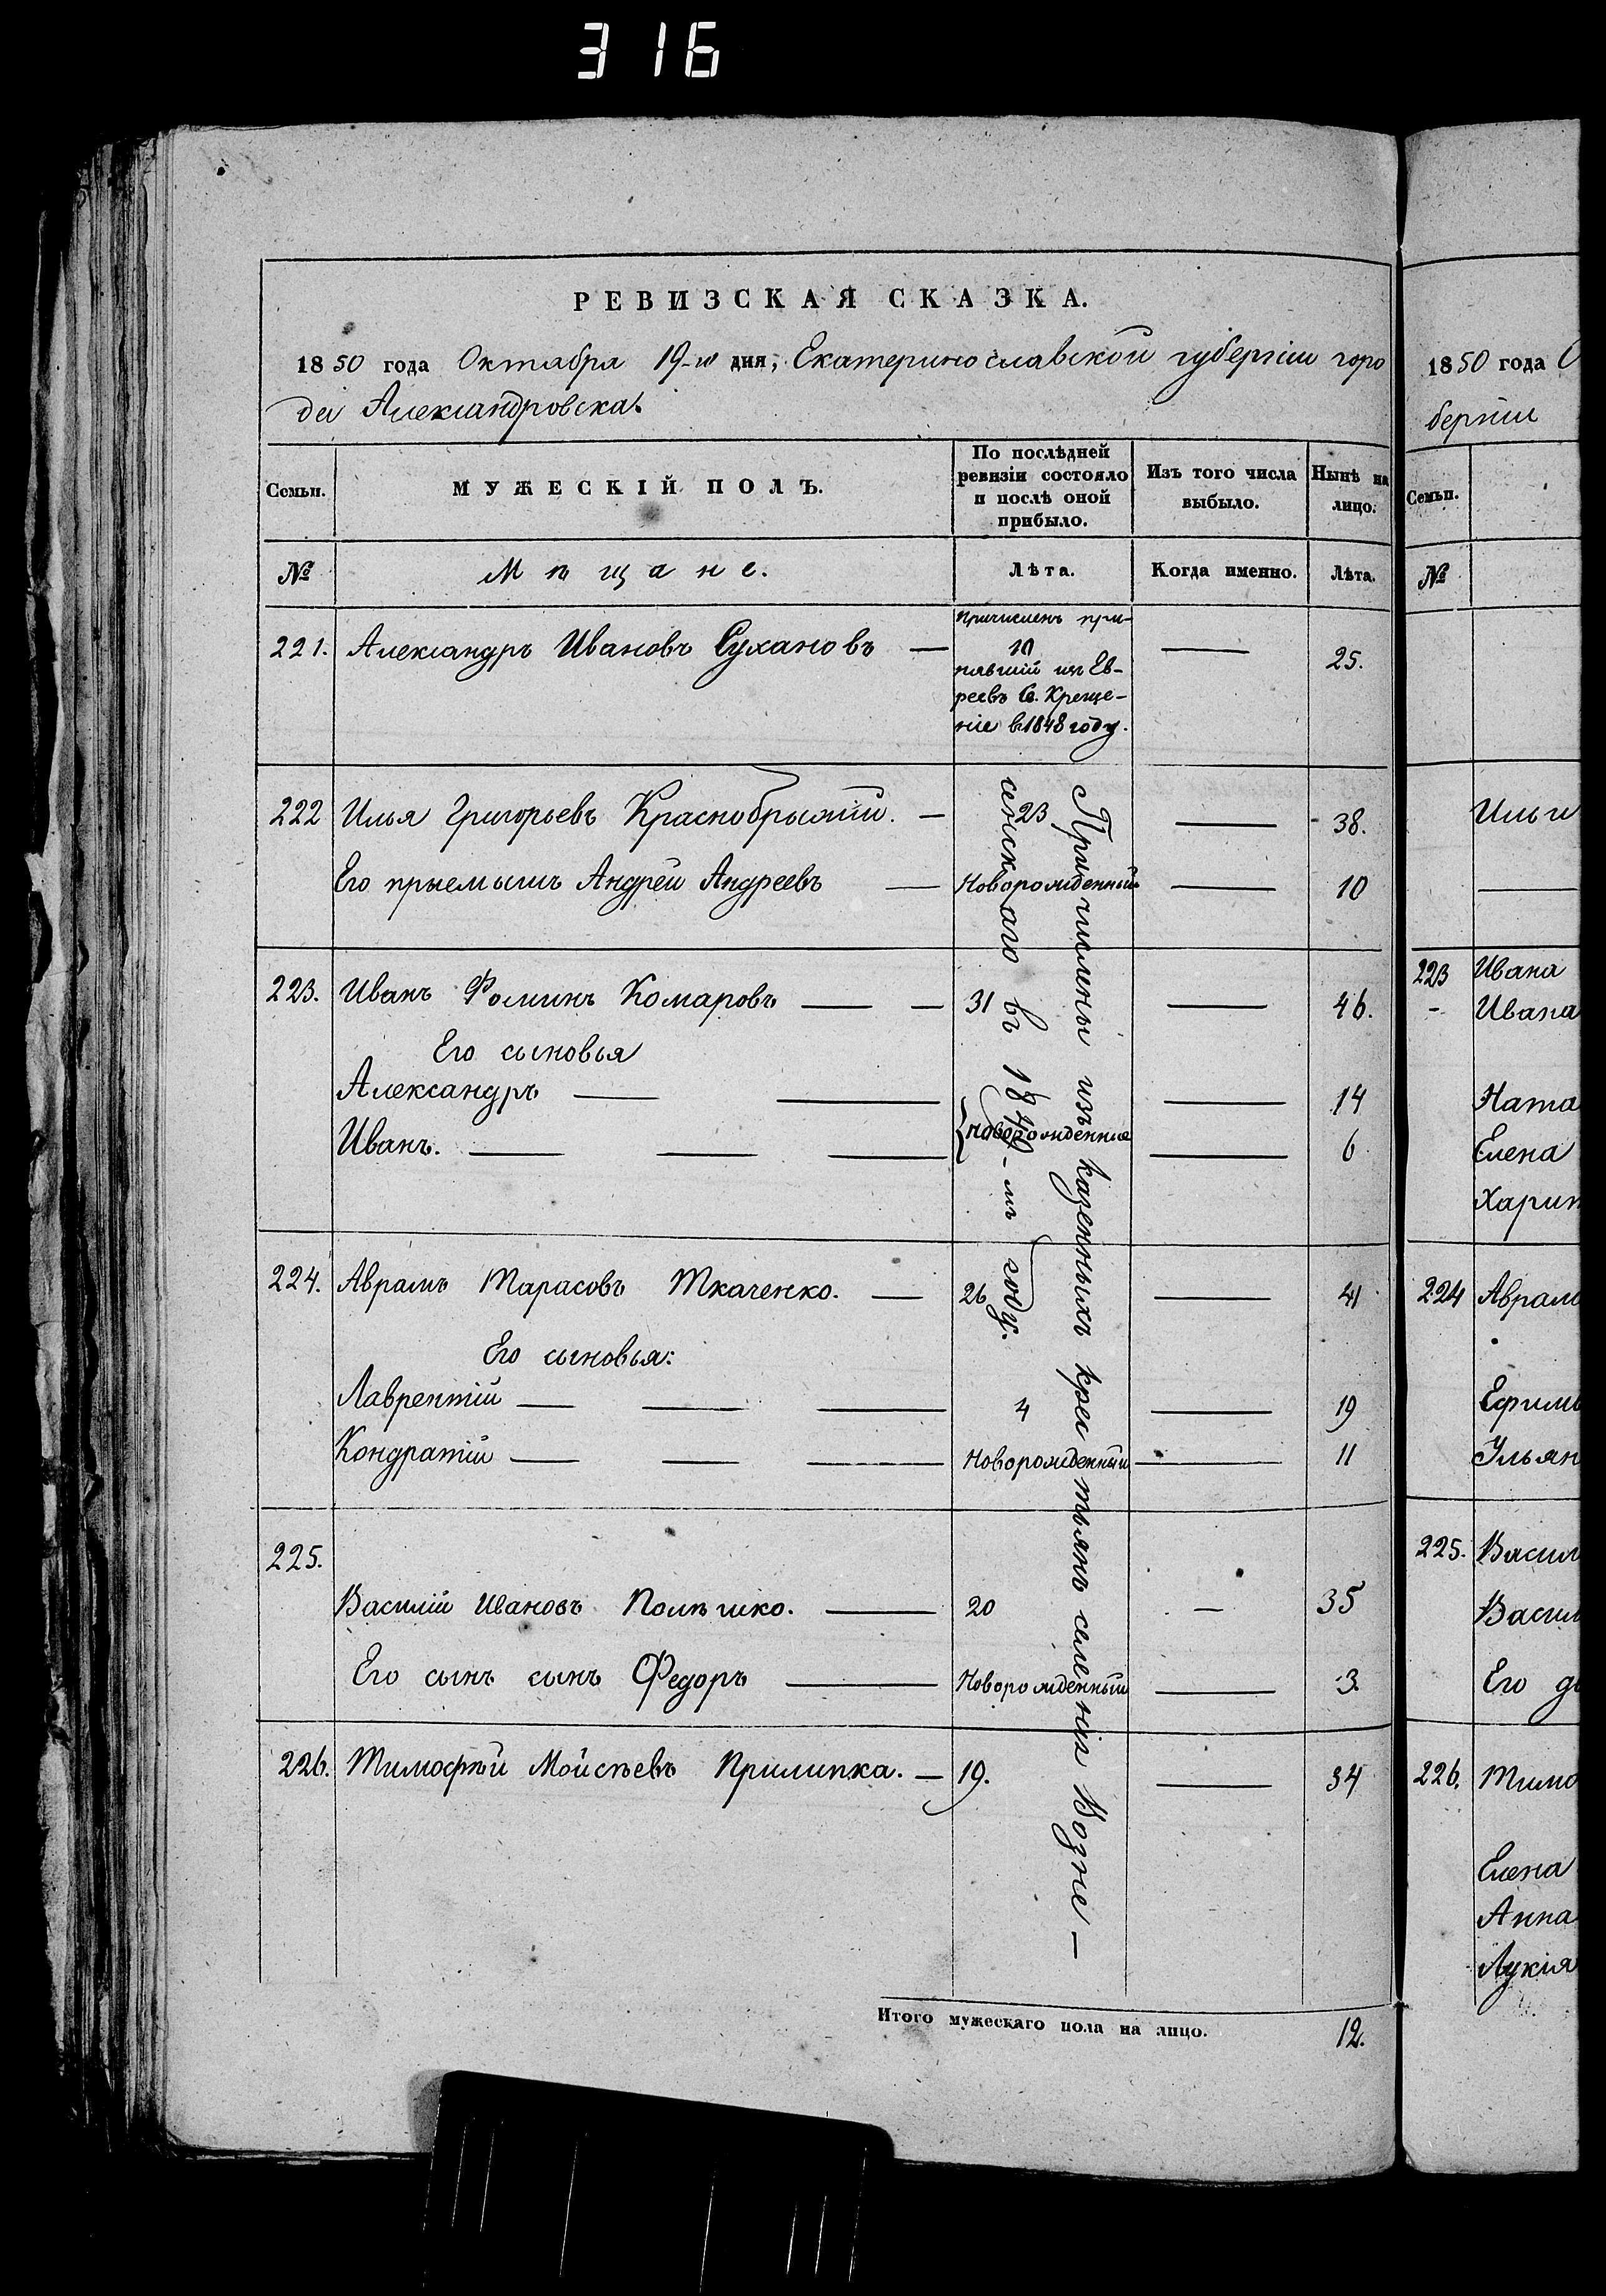 316
РЕВИЗСКАЯ СКАЗКА.
1850 года Октября 19-го дня, Екатеринославской губерніи горо
да Александровска.
Семьи.
МУЖЕСКІЙ ПОЛЪ.
По послѣдней
ревизіи состояло
и послѣ оной
прибыло.
Изъ того числа
выбыло.
Нынѣ на
лицо.
№
Мѣщане.
Лѣта.
Когда именно.
Лѣта.
221. Александръ Ивановъ Сухановъ — 10 — 25.
Причисленъ при-
нявшій изъ Ев-
реевъ Св. Креще-
ніе в 1848 году.
222 Илья Григорьевъ Краснобрыжій. — 23 — 38.
Его пріемышъ Андрей Андреевъ — Новорожденный — 10
223. Иванъ Фоминъ Комаровъ — — 31 — 46.
Его сыновья
Александръ — — — 14
Иванъ. — — — {новорожденные — 6
224. Аврамъ Тарасовъ Ткаченко. — 26 — 41
Его сыновья:
Лаврентій — — — 4 — 19
Кондратій — — — Новорожденный — 11
225.
Василій Ивановъ Полѣшко. — 20 — 35
Его сынъ сынъ Федоръ — Новорожденный — 3
226. Тимофѣй Мойсѣевъ Прилипка. — 19. — 34
Причислены изъ казенныхъ крестьянъ селенія Возне-
сенскаго въ 1849-мъ году.
Итого мужескаго пола на лицо. 12.
1850 года О
берніи
Семьи.
№
Ильи
223 Ивана
- Ивана
Ната
Елена
Харит
224 Аврам
Ефимь
Ульян
225. Васил
Васил
Его д
226. Тимо
Елена
Анна
Лукія